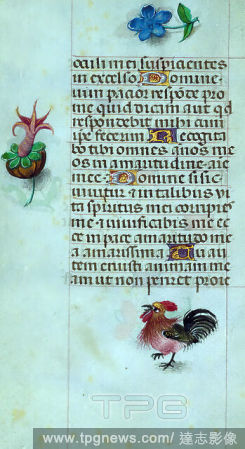 oculi mei suspicientes
in excelso. Domine
vim patior respōde pro
me quid dicam aut qd
respondebit mihi cum
ipse fecerim. Recogita
bo tibi omnes anos me
os in amaritudine aīe
mee. Domine si sic
vivitur et in talibus vita
spiritus mei corripies
me et vivificabis me ec
ce in pace amaritudo me
a amarissima. Tu au
tem eruisti animam me
am ut non periret proie
TPG
www.tpgnews.com / 達志影像